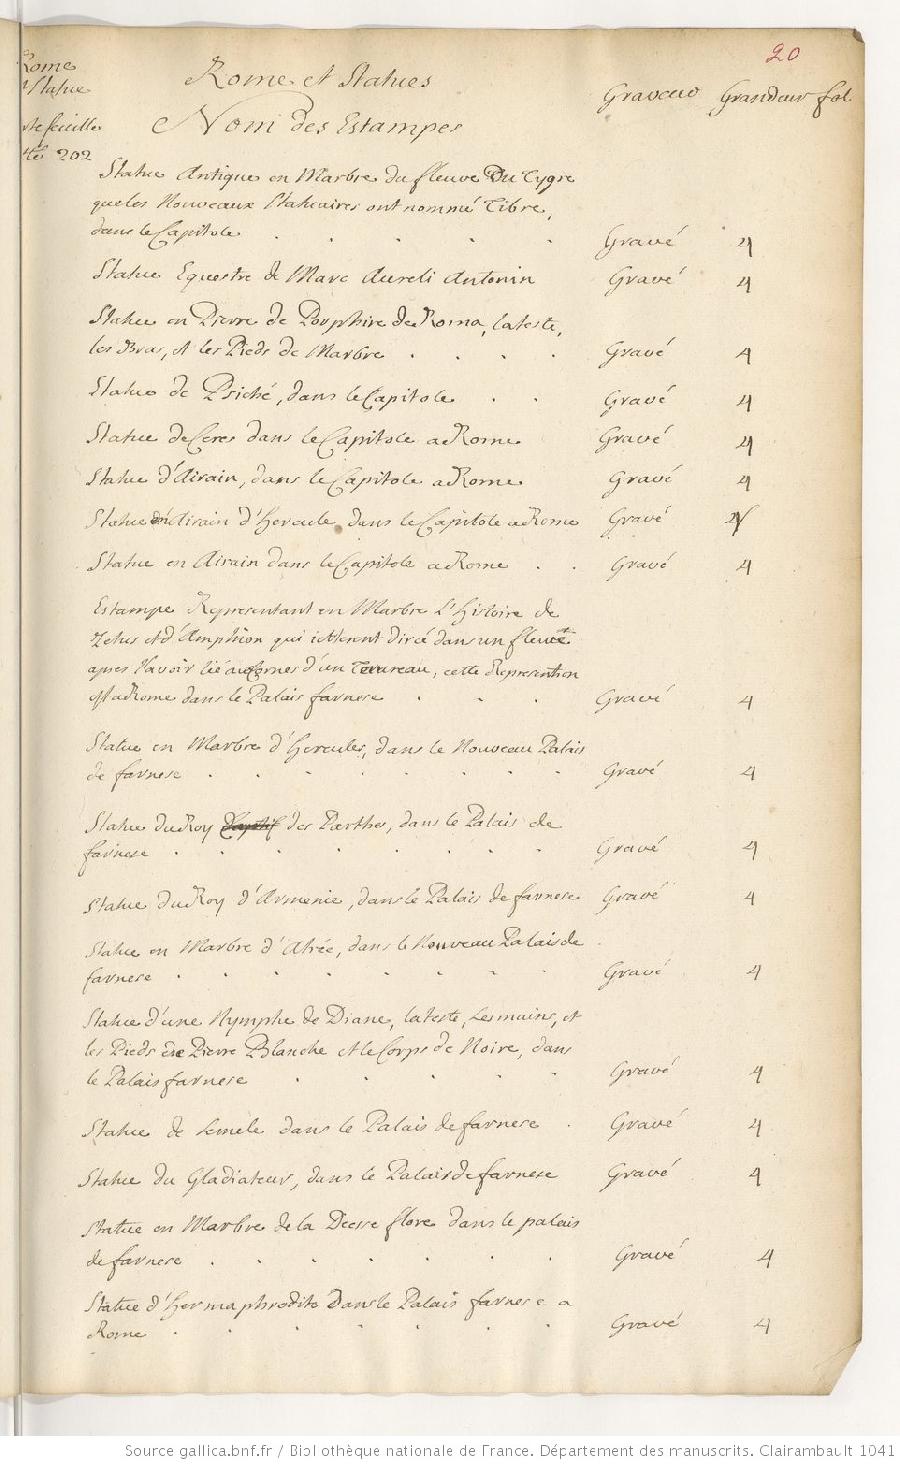 20
Rome
Statue
Rome et Statues
Graveur Grandeur fol.
Nom des Estampes
202
Statue Antique en Marbre du fleuve Du Tygre
que les Nouveaux Statuaires ont nommé Tibre,
dans le Capitole . . . . . Gravé 4
Statue Equestre de Marc Aureli Antonin Gravé 4
Statue en Pierre de Porphire de Roma, la teste,
les Bras, et les Pieds de Marbre . . . . Gravé 4
Statue de Psiché, dans le Capitole . . Gravé 4
Statue de Ceres dans le Capitole a Rome Gravé 4
Statue d'Airain, dans le Capitole a Rome Gravé 4
Statue en Airain d'Hercule, dans le Capitole a Rome Gravé 4
Statue en Airain dans le Capitole a Rome . . Gravé 4
Estampe Representant en Marbre L'Histoire de
Zetus et d'Amphion qui jetterent Dircé dans un fleuve
apres l'avoir lié aux Cornes d'un Taureau, cette Representation
est a Rome dans le Palais farnese . . . Gravé 4
Statue en Marbre d'Hercules, dans le Nouveau Palais
de farnese . . . . . . . . Gravé 4
Statue du Roy Captif des Parthes, dans le Palais de
farnese . . . . . . . . Gravé 4
Statue du Roy d'Armenie, dans le Palais de farnese Gravé 4
Statue en Marbre d'Atrée, dans le Nouveau Palais de
farnese . . . . . . . . Gravé 4
Statue d'une Nymphe de Diane, la teste, les mains, et
les Pieds de Pierre Blanche et le Corps de Noire, dans
le Palais farnese . . . . . Gravé 4
Statue de Semele dans le Palais de farnese . Gravé 4
Statue du Gladiateur, dans le Palais de farnese Gravé 4
Statue en Marbre de la Deesse flore dans le palais
de farnese . . . . . . . Gravé 4
Statue d'Hermaphrodite Dans le Palais farnese a
Rome . . . . . Gravé 4
Source gallica.bnf.fr / Bibliothèque nationale de France. Département des manuscrits. Clairambault 1041